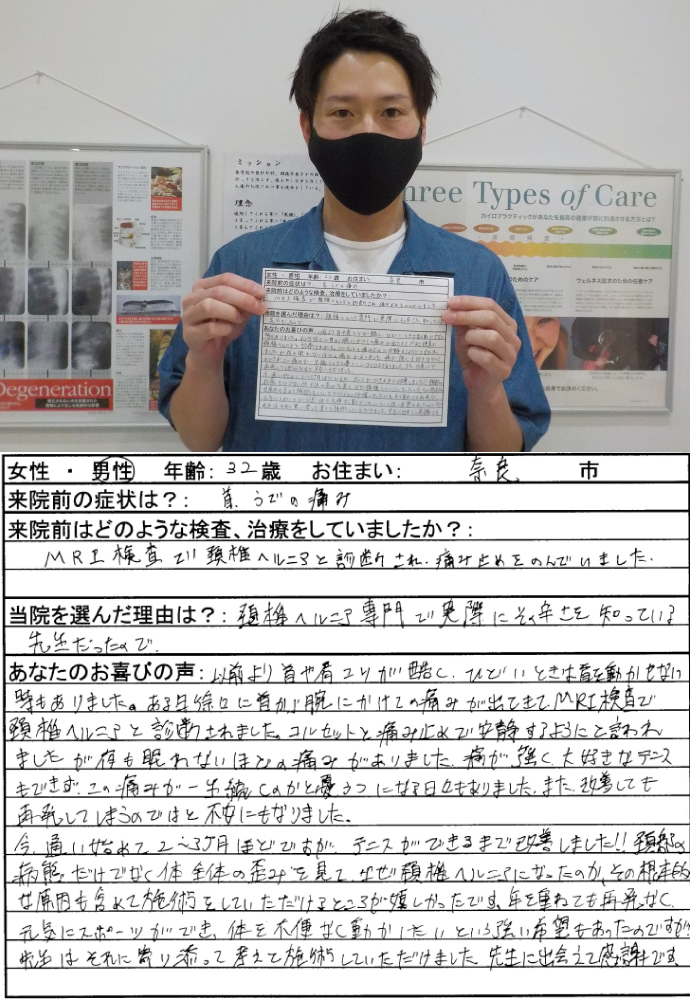 ミッション
理念
Three Types of Care
カイロプラクティックがあなたを最高の健康状態に到達させる方法とは?
ウェルネス达成のための任意ケア
Degeneration
女性 ・ 男性 年齢: 32歳 お住まい: 奈良 市
来院前の症状は?: 首、うでの痛み
来院前はどのような検査、治療をしていましたか?:
MRI検査で頚椎ヘルニアと診断され、痛み止めをのんでいました。
当院を選んだ理由は?: 頚椎ヘルニア専門で実際にその辛さを知っている
先生だったので。
あなたのお喜びの声: 以前より首や肩コリが酷く、ひどいときは首を動かせない
時もありました。ある日徐々に首から腕にかけての痛みが出てきてMRI検査で
頚椎ヘルニアと診断されました。コルセットと痛み止めで安静するようにと言われ
ましたが夜も眠れないほどの痛みがありました。痛が強く、大好きなテニス
もできず、この痛みが一生続くのかと憂うつになる日もありました。また、改善しても
再発してしまうのではと不安にもなりました。
今、通い始めて2~3ヶ月ほどですが、テニスができるまで改善しました!!頚部の
病態だけでなく体全体の歪みを見て、なぜ頚椎ヘルニアになったのか、その根本的
な原因も含めて施術をしていただけるところが嬉しかったです。年を重ねても再発なく、
元気にスポーツができ、体を不便なく動かしたいという強い希望もあったのですが、
先生はそれに寄り添って考えて施術していただけました。先生に出会えて感謝です。